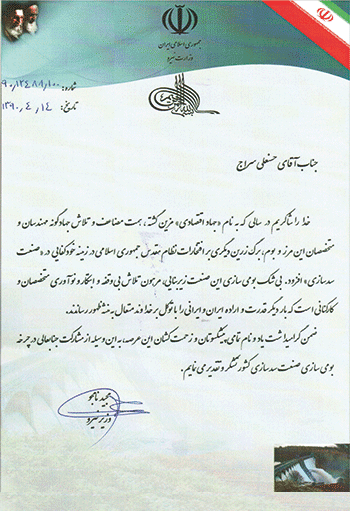 جمهوری اسلامی ایران
وزارت نیرو
شماره: ۹۰٫۱۲۴۸۸٫۱۰۰
تاریخ: ۱۳۹۰٫۴٫۱۴
جناب آقای حسنعلی سراج
خدا را شاکریم در سالی که به نام «جهاد اقتصادی» مزین گشته، همت مضاعف و تلاش جهادگونه مهندسان و
متخصصان این مرز و بوم، برگ زرین دیگری بر افتخارات نظام مقدس جمهوری اسلامی در زمینه خودکفایی در «صنعت
سدسازی» افزود. بی شک بومی سازی این صنعت زیربنایی، مرهون تلاش بی وقفه و ابتکار و نوآوری متخصصان و
کارکنانی است که بار دیگر قدرت و اراده ایران و ایرانی را با توکل بر خداوند متعال به منصه ظهور رساندند.
ضمن گرامیداشت یاد و نام تمامی پیشکسوتان و زحمت کشان این عرصه، به این وسیله از مشارکت جنابعالی در چرخه
بومی سازی صنعت سدسازی کشور تشکر و تقدیر می نمایم.
مجید نامجو
وزیر نیرو